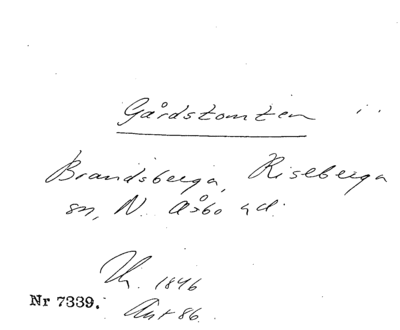 Gårdstomten
Brandsberga, Riseberga
sn, N. Åsbo hd.
1846
Nr 7339.
86.